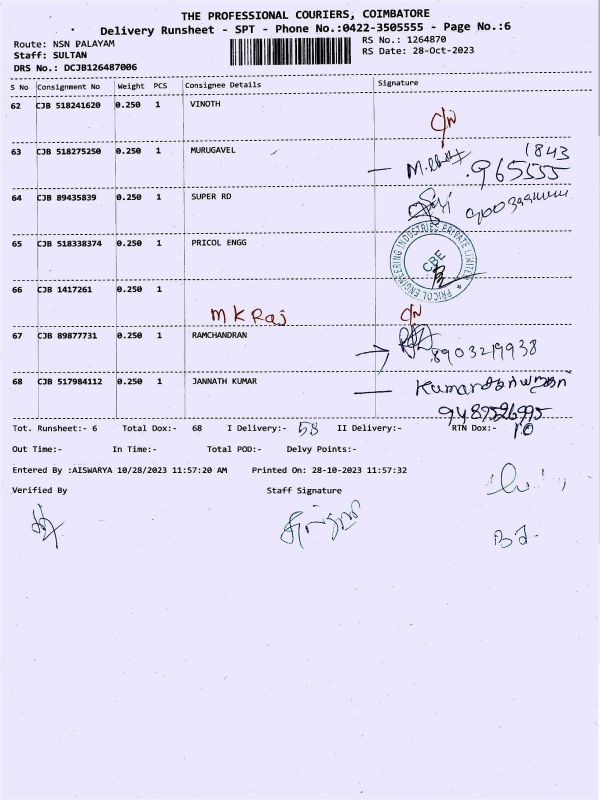 THE PROFESSIONAL COURIERS, COIMBATORE
Delivery Runsheet - SPT - Phone No.:0422-3505555 - Page No.:6
Route: NSN PALAYAM
RS No.: 1264870
Staff: SULTAN
RS Date: 28-Oct-2023
DRS No.: DCJB126487006
S No Consignment No Weight PCS Consignee Details Signature
62 CJB 518241620 0.250 1 VINOTH
C/N
63 CJB 518275250 0.250 1 MURUGAVEL
1843
965555
64 CJB 89435839 0.250 1 SUPER RD
65 CJB 518338374 0.250 1 PRICOL ENGG
PRICOL ENGINEERING INDUSTRIES PRIVATE LIMITED
CBE
66 CJB 1417261 0.250 1
MK Raj C/N
67 CJB 89877731 0.250 1 RAMCHANDRAN
8903219938
68 CJB 517984112 0.250 1 JANNATH KUMAR
9489526995
Tot. Runsheet:- 6 Total Dox:- 68 I Delivery:- 58 II Delivery:- RTN Dox:- 10
Out Time:- In Time:- Total POD:- Delvy Points:-
Entered By :AISWARYA 10/28/2023 11:57:20 AM Printed On: 28-10-2023 11:57:32
Verified By Staff Signature